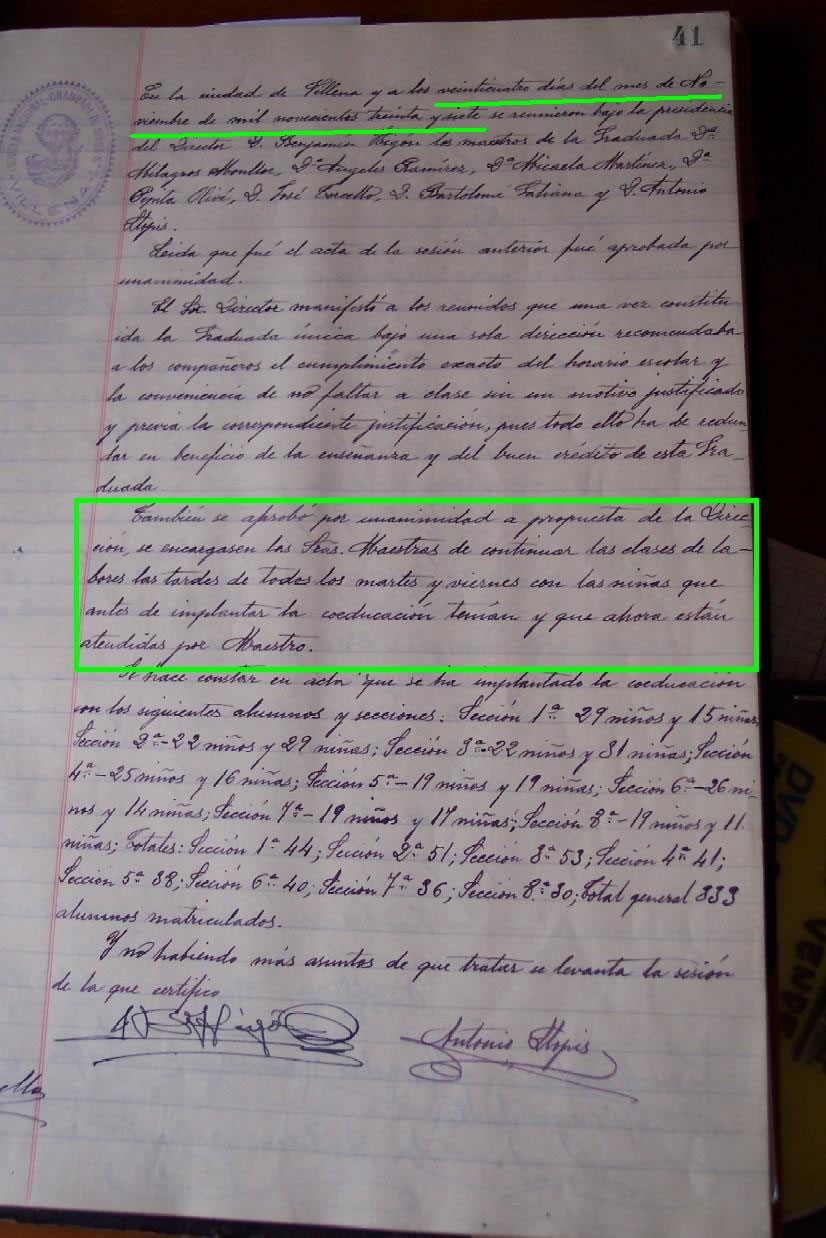 41
En la ciudad de Villena y a los veinticuatro dias del mes de No-
viembre de mil novecientos treinta y siete se reunieron bajo la presidencia
del Director D. Benjamín Higón los maestros de la Graduada Dª
Milagros Monllor, Dª Angeles Ramírez, Dª Micaela Martínez, Dª
Pepita Olivé, D. José D. Bartolomé Tatiana y D. Antonio
Llopis.
Leida que fué el acta de la sesión anterior fué aprobada por
unanimidad.
El Sr. Director manifestó a los reunidos que una vez constitu-
ida la Graduada única bajo una sola dirección recomendaba
a los compañeros el cumplimiento exacto del horario escolar y
la conveniencia de no faltar a clase sin un motivo justificado
y previa la correspondiente justificación, pues todo ello ha de redun-
dar en beneficio de la enseñanza y del buen crédito de esta Gra-
duada.
También se aprobó por unanimidad a propuesta de la Direc-
ción, se encargasen las Sras. Maestras de continuar las clases de la-
bores las tardes de todos los martes y viernes con las niñas que
antes de implantar la coeducación tenían y que ahora están
atendidas por Maestro.
Se hace constar en acta que se ha implantado la coeducación
con los siguientes alumnos y secciones: Sección 1ª 29 niños y 15 niñas;
Sección 2ª-22 niños y 29 niñas; Sección 3ª-22 niños y 31 niñas; Sección
4ª-25 niños y 16 niñas; Sección 5ª-19 niños y 19 niñas; Sección 6ª-26 ni-
nos y 14 niñas; Sección 7ª-19 niños y 17 niñas; Sección 8ª-19 niños y 11
niñas; Totales: Sección 1ª 44; Sección 2ª 51; Sección 3ª 53; Sección 4ª 41;
Sección 5ª 38; Sección 6ª 40; Sección 7ª 36; Sección 8ª 30; Total general 333
alumnos matriculados.
Y no habiendo más asuntos de que tratar se levanta la sesión
de la que certifico
Antonio Llopis
VILLENA
DVD
VENDE